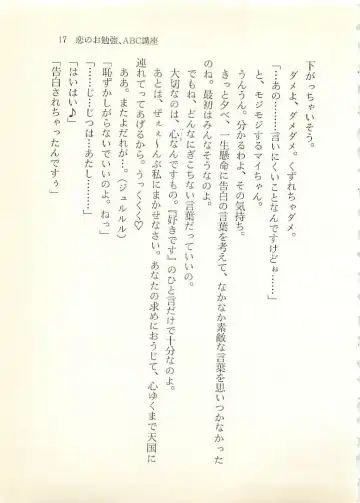 17 恋のお勉強、ABC講座
下がっちゃいそう。
ダメよ、ダメダメ。くずれちゃダメ。
「…あの………言いにくいことなんですけどぉ……」
と、モジモジするマイちゃん。
うんうん。分かるわよ、その気持ち。
きっと夕べ、一生懸命に告白の言葉を考えて、なかなか素敵な言葉を思いつかなかった
のね。最初はみんなそうなのよ。
でも、どんなにぎこちない言葉だっていいの。
大切なのは、心なんですもの。『好きです』のひと言だけで十分なのよ。
あとは、ぜぇぇ〜んぶ私にまかせなさい。あなたの求めにおうじて、心ゆくまで天国に
連れてってあげるから。うっくくく♡
ああ。またよだれが…。(ジュルルル)
「恥ずかしがらないでいいのよ。ねっ」
「……じ…じつは…あたし………」
「はいはい♪」
「告白されちゃったんですぅ」